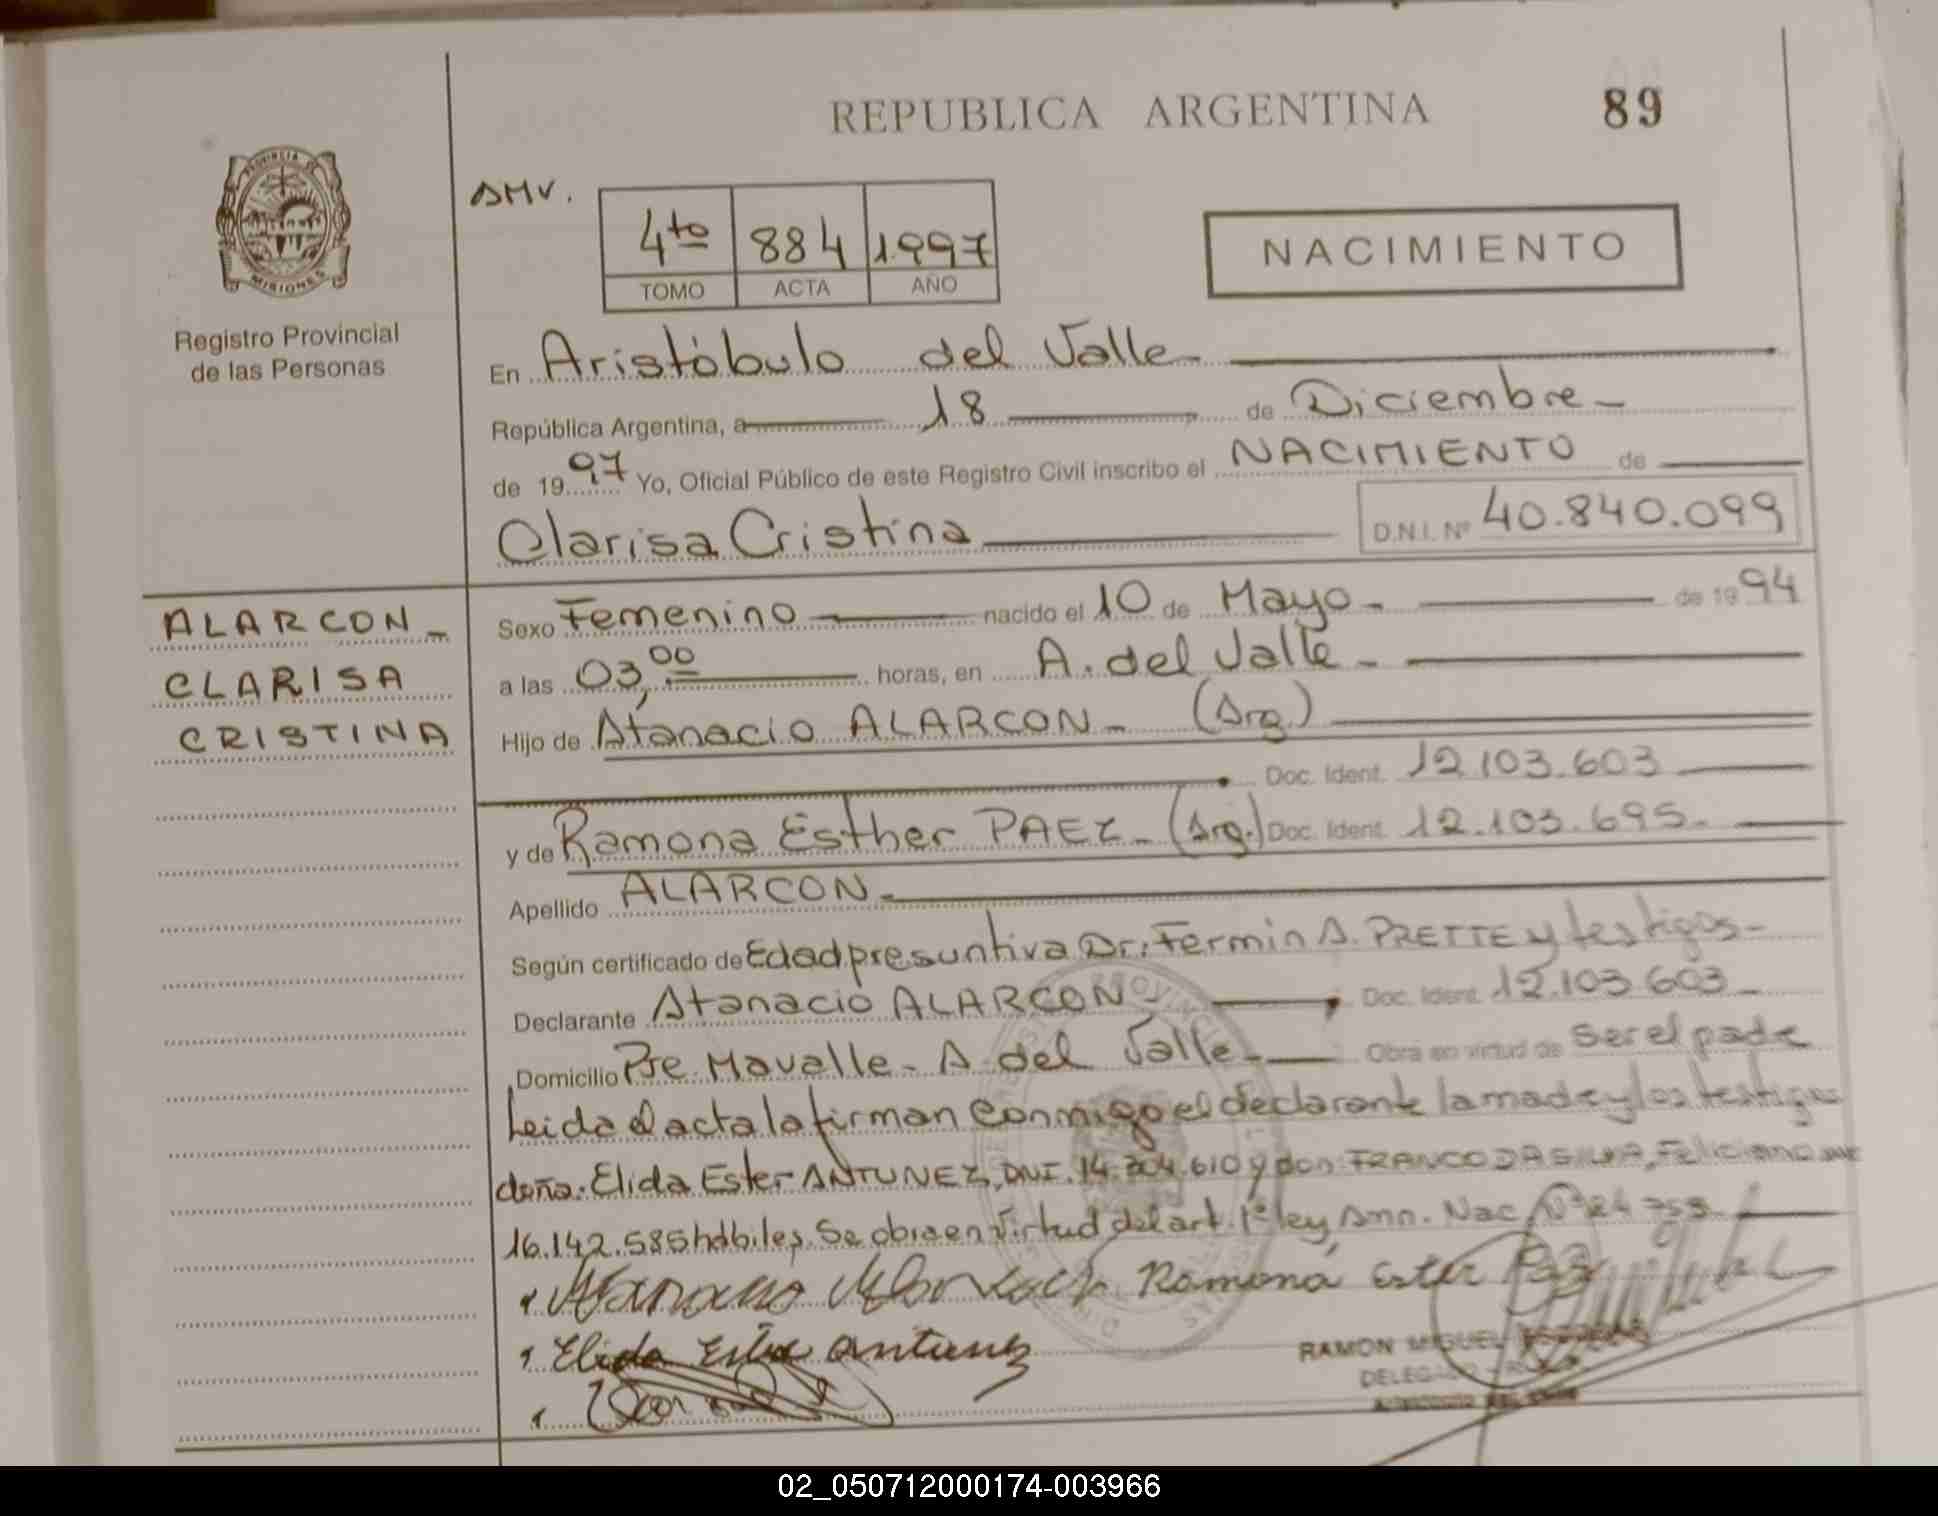 REPUBLICA ARGENTINA
89
PROVINCIA DE
MISIONES
Registro Provincial
de las Personas
AMV.
4to 884 1.997
TOMO ACTA AÑO
NACIMIENTO
En Aristóbulo del Valle
República Argentina, a 18 de Diciembre
de 1997 Yo, Oficial Público de este Registro Civil inscribo el NACIMIENTO de
Clarisa Cristina D.N.I. Nº 40.840.099
ALARCON
CLARISA
CRISTINA
Sexo Femenino nacido el 10 de Mayo de 1994
a las 03,00 horas, en A. del Valle
Hijo de Atanacio ALARCON (Arg.)
Doc. Ident. 12.103.603
y de Ramona Esther PAEZ (Arg.) Doc. Ident. 12.103.695
Apellido ALARCON
Según certificado de Edad presuntiva Dr. Fermin A. PRETTE y testigos
Declarante Atanacio ALARCON Doc. Ident. 12.103.603
Domicilio Pje. Mavalle - A. del Valle Obra en virtud de ser el padre
Leida el acta la firman conmigo el declarante la madre y los testigos
doña: Elida Ester ANTUNEZ, DNI. 14. .610 y don: FRANCO DA SILVA, Feliciano
16.142.585 hábiles. Se obra en virtud del art. 1º ley Amn. Nac. Nº 24.755
Ramona Ester
Elida Ester Antunez
RAMON MIGUEL
02_050712000174-003966